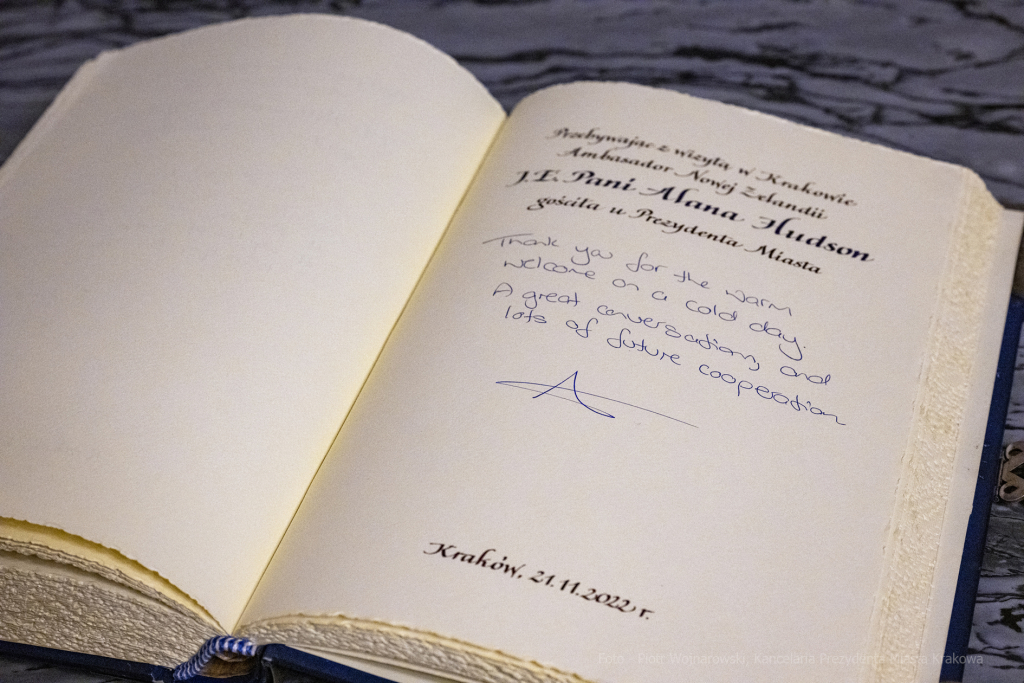 Przebywając z wizytą w Krakowie
Ambasador Nowej Zelandii
J.E. Pani Alana Hudson
gościła u Prezydenta Miasta
Thank you for the warm
welcome on a cold day.
A great conversation, and
lots of future cooperation
Kraków, 21.11.2022 r.
Foto.: Piotr Wojnarowski, Kancelaria Prezydenta Miasta Krakowa